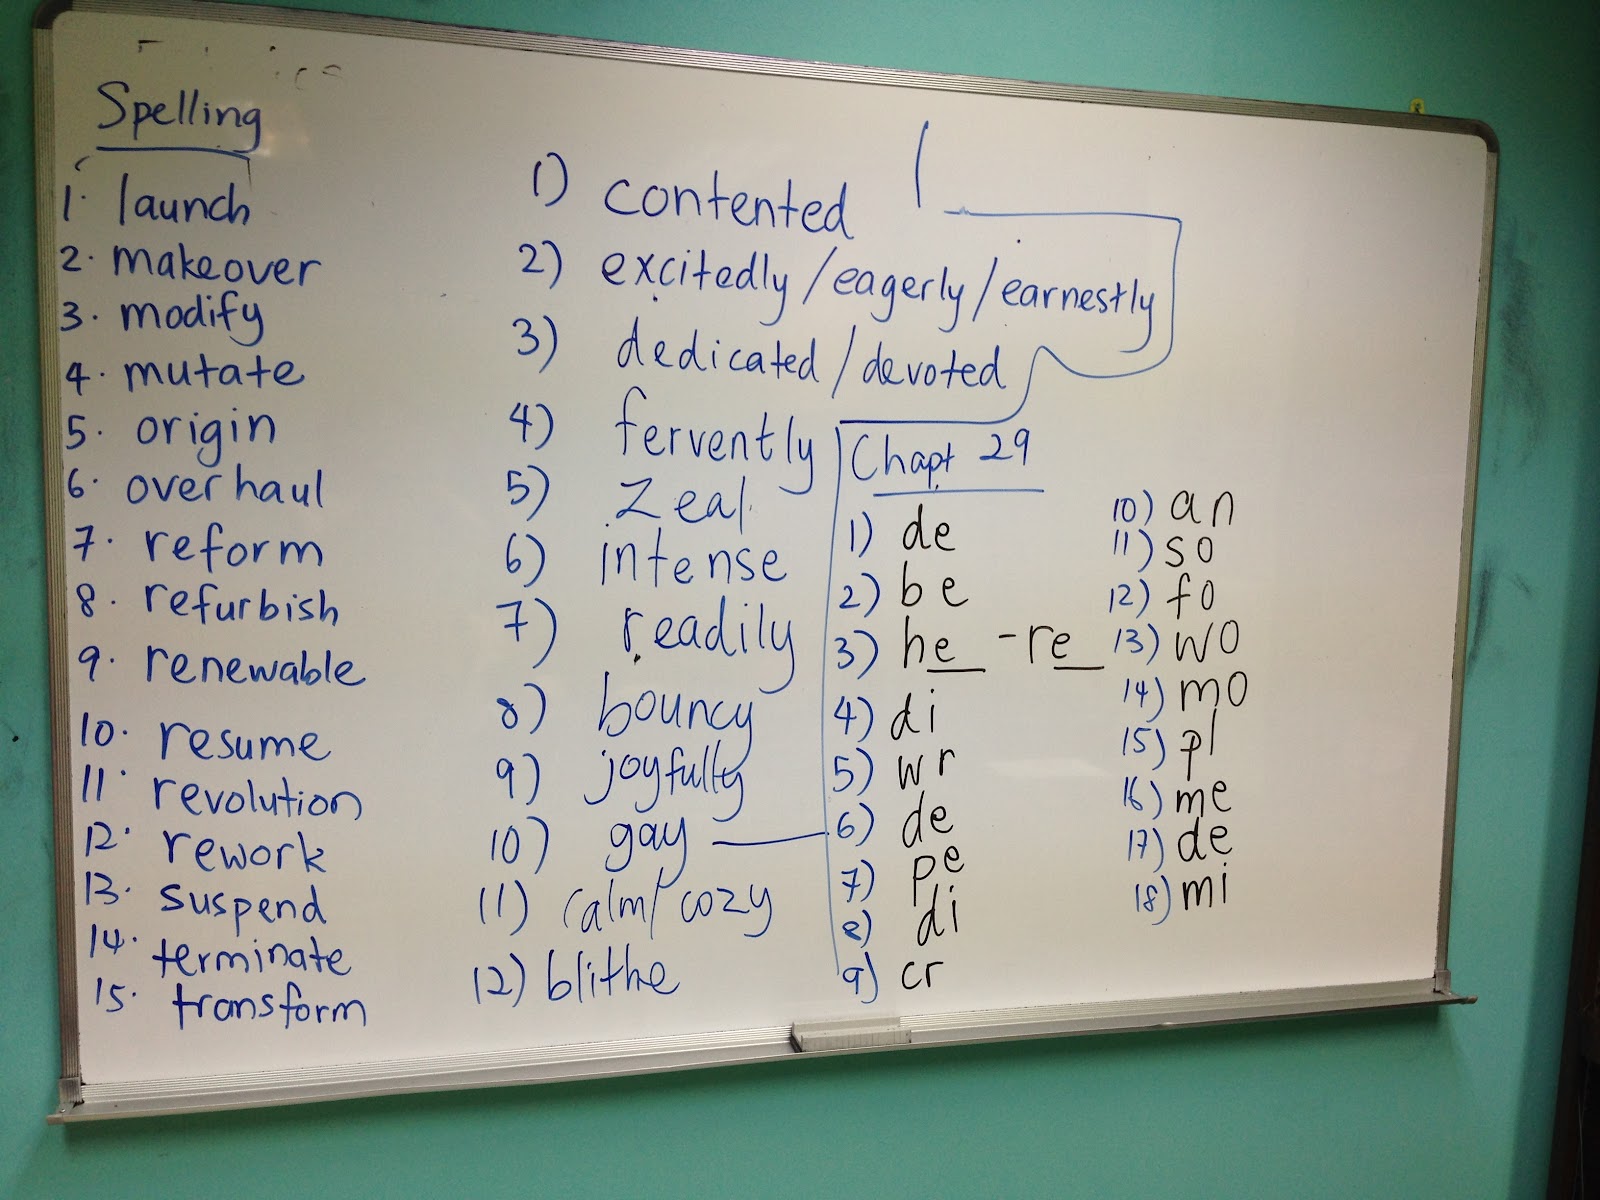 Spelling
1. launch
2. makeover
3. modify
4. mutate
5. origin
6. overhaul
7. reform
8. refurbish
9. renewable
10. resume
11. revolution
12. rework
13. suspend
14. terminate
15. transform
1) contented
2) excitedly/eagerly/earnestly
3) dedicated/devoted
4) fervently
5) Zeal
6) intense
7) readily
8) bouncy
9) joyfully
10) gay
11) calm/cozy
12) blithe
Chapt 29
1) de
2) be
3) he - re
4) di
5) wr
6) de
7) pe
8) di
9) cr
10) an
11) so
12) fo
13) wo
14) mo
15) pl
16) me
17) de
18) mi